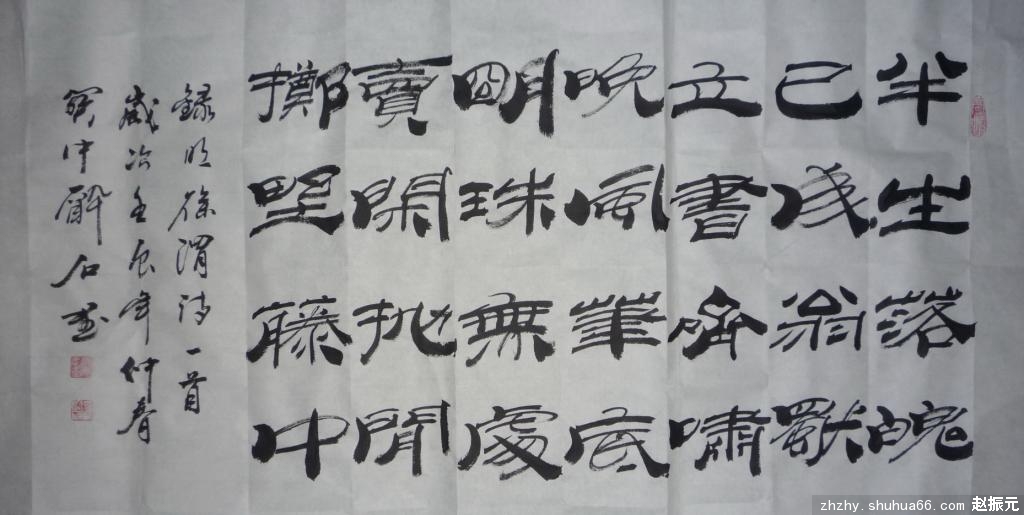 半生落魄
已成翁獨
立書齋嘯
晚風筆底
明珠無處
賣閑拋閒
擲野藤中
錄明徐渭詩一首
歲次壬辰年仲春
關中醉石書
zhzhy.shuhua66.com 赵振元